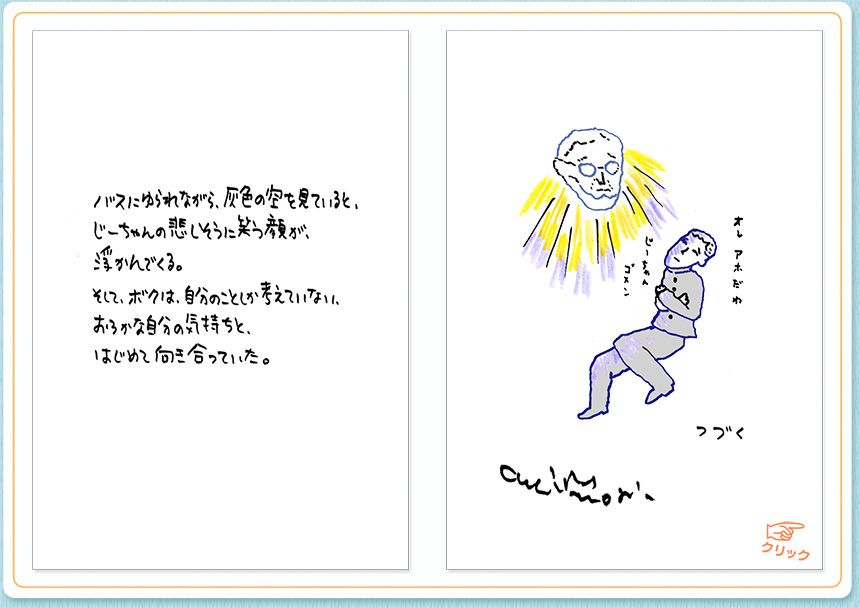 バスにゆられながら、灰色の空を見ていると、
じーちゃんの悲しそうに笑う顔が、
浮かんでくる。
そして、ボクは、自分のことしか考えていない、
おろかな自分の気持ちと、
はじめて向き合っていた。
オレ アホだわ
じーちゃん
ゴメン
つづく
クリック